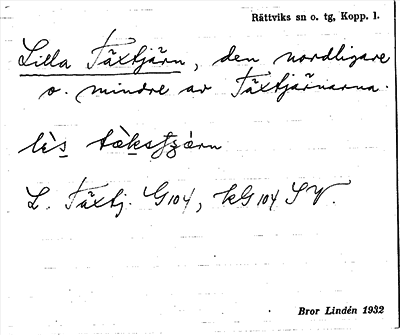 Rättviks sn o. tg, Kopp. l.
Lilla Täxtjärn, den nordligare
o. mindre av Täxtjärnarna.
L. Täxtj. G104, kG104 SV.
Bror Lindén 1932